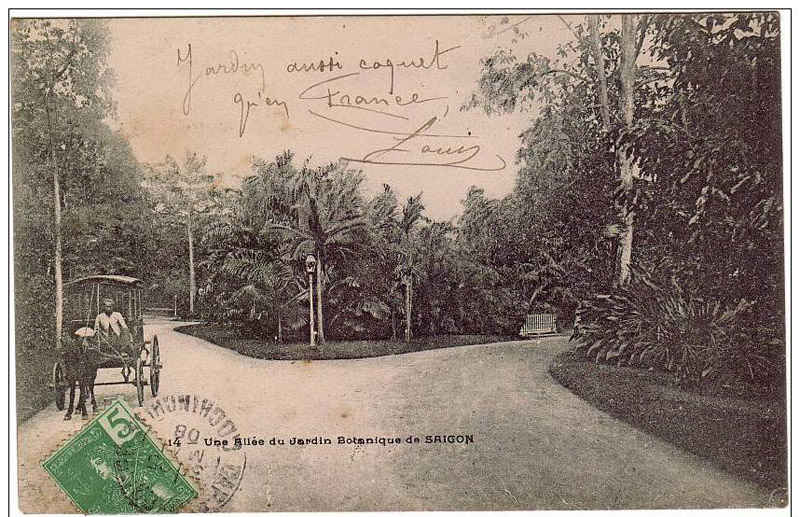 Jardin aussi coquet
qu'en France
Louis
14 - Une Allée du Jardin Botanique de SAIGON
COCHINCHINE
08
5